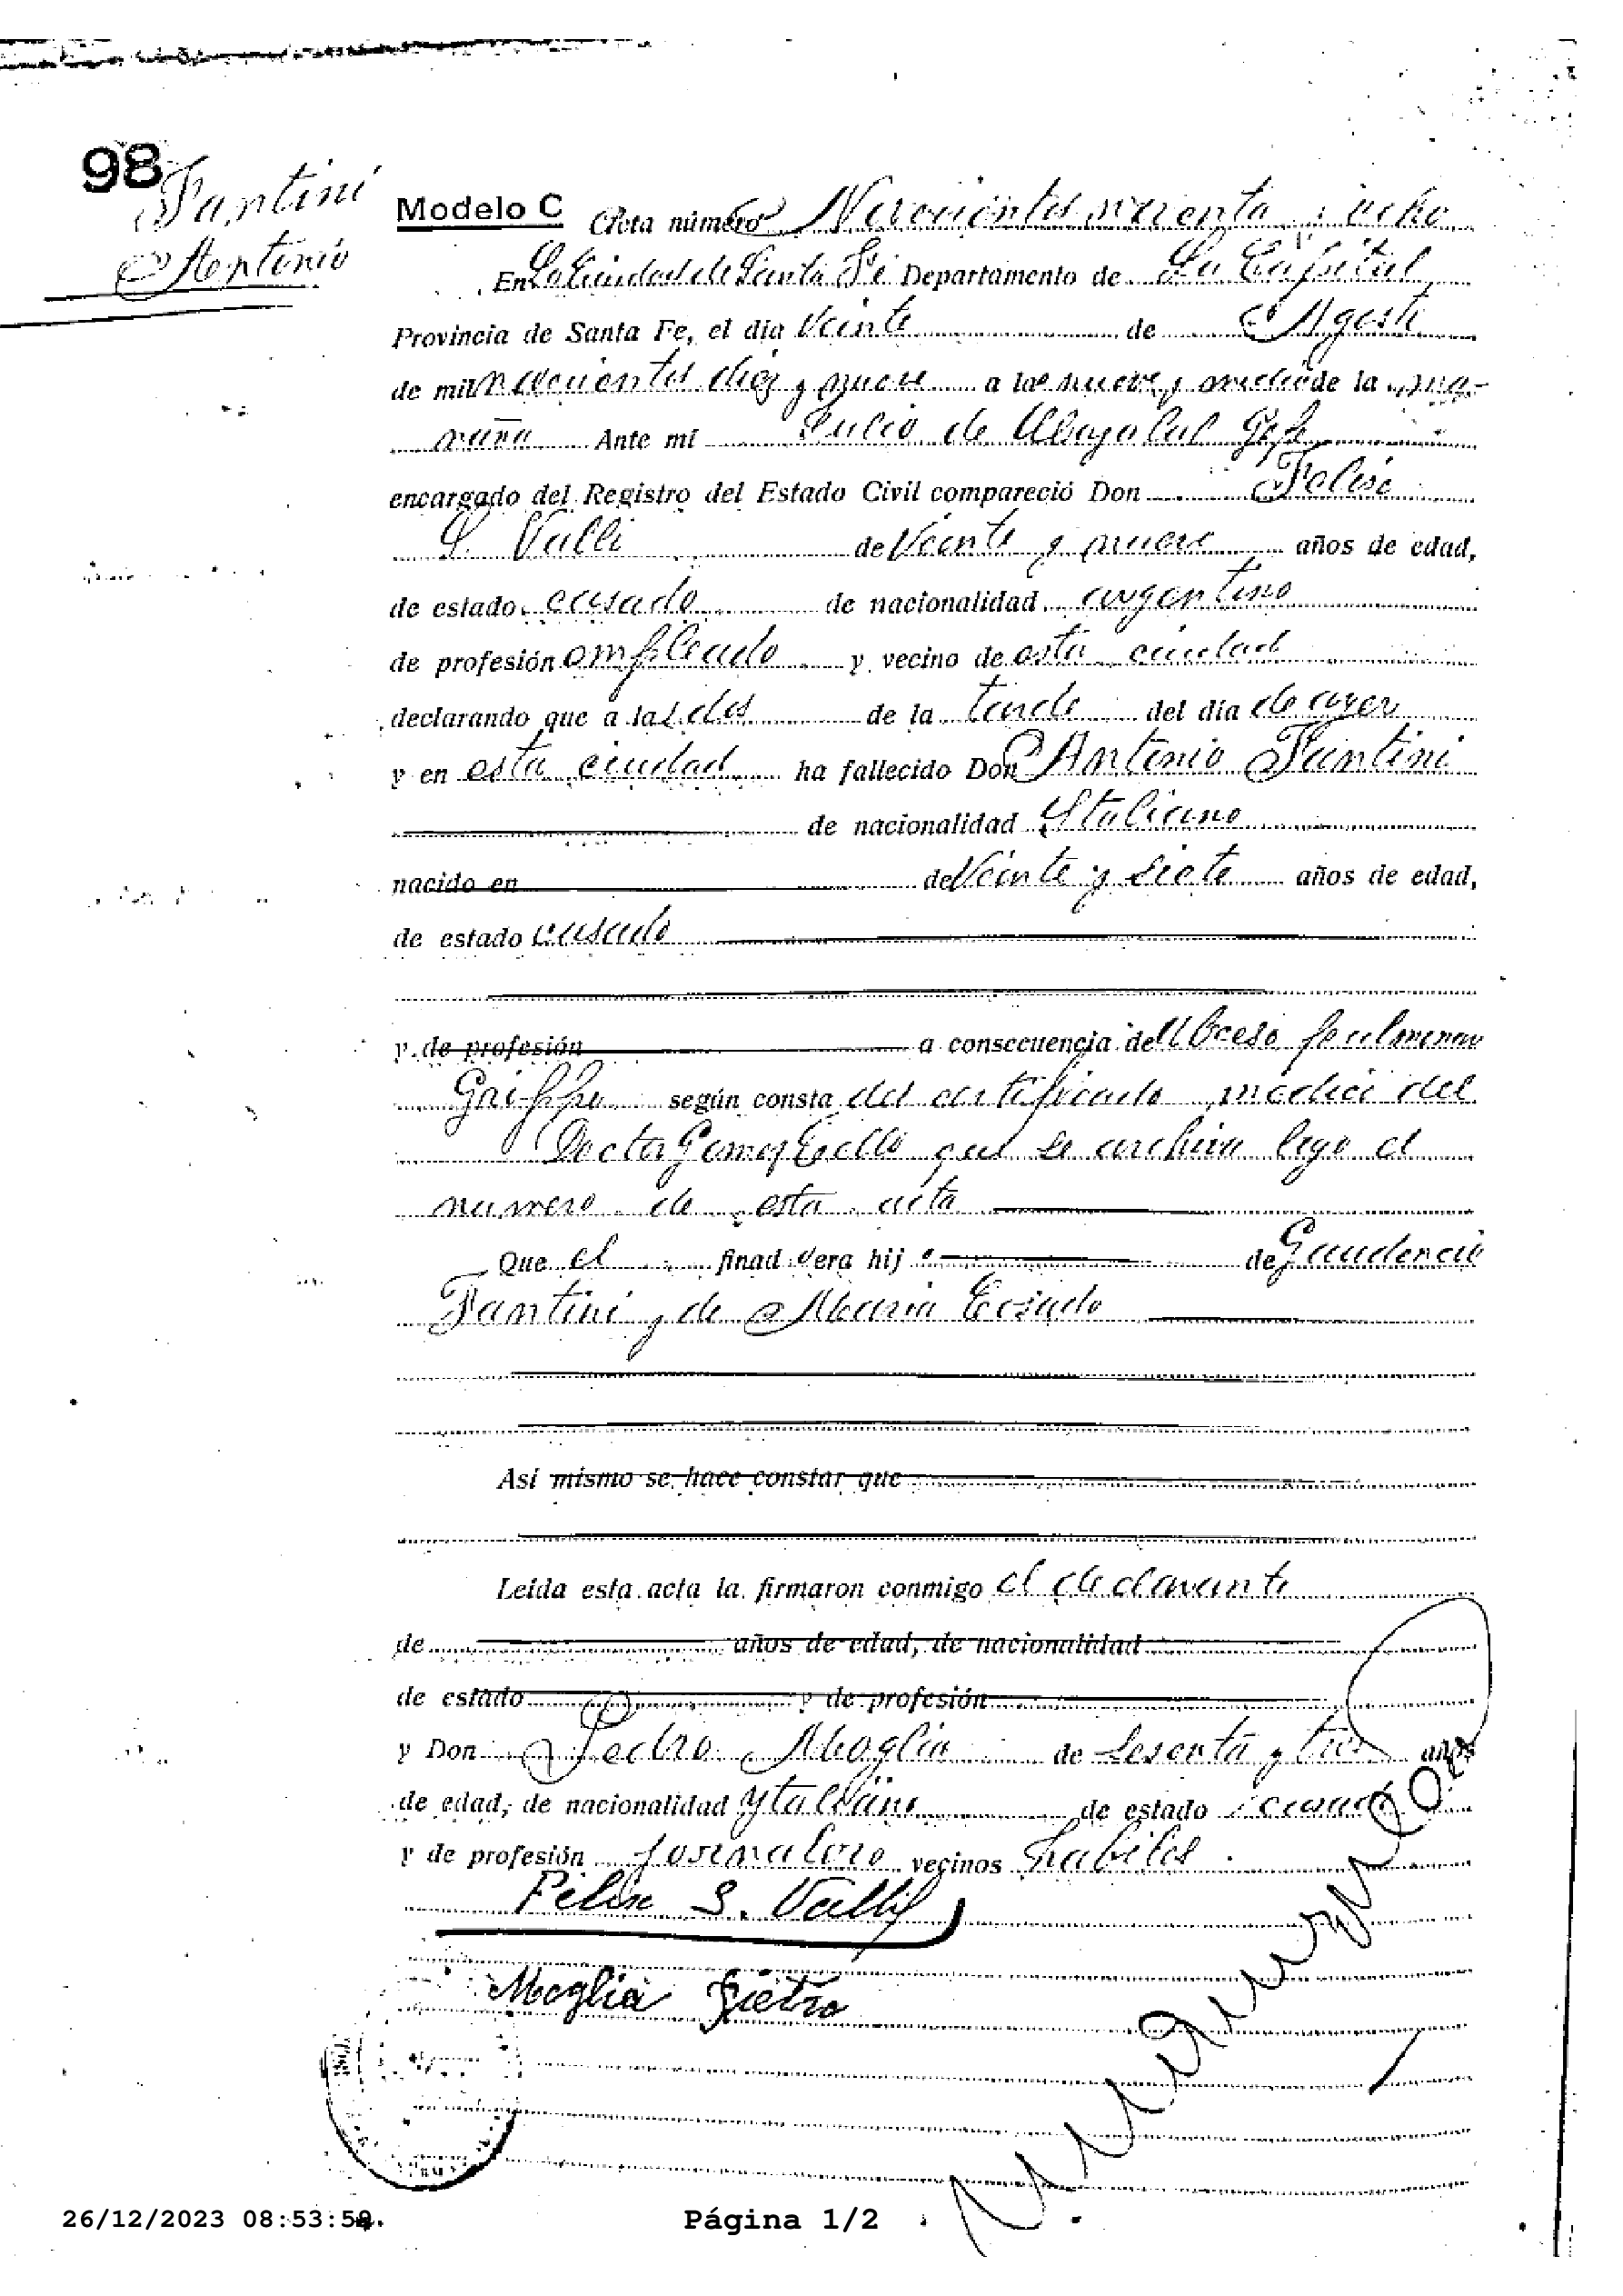 98
Fantini
Antonio
Modelo C Acta número Novecientos noventa y ocho
En La Ciudad de Santa Fé Departamento de La Capital
Provincia de Santa Fe, el día Veinte de Agosto
de mil novecientos diez y nueve a las nueve y media de la ma-
ñana Ante mí Julio de Abapalul Gefe
encargado del Registro del Estado Civil compareció Don Felise
S. Valli de Veinte y nueve años de edad,
de estado casado de nacionalidad argentino
de profesión empleado y vecino de esta ciudad
declarando que a las dos de la tarde del día de ayer
y en esta ciudad ha fallecido Don Antonio Fantini
de nacionalidad Italiano
nacido en de Veinte y siete años de edad,
de estado casado
y de profesión a consecuencia de Abceso pulmonar
Grippe según consta del certificado medico del
Doctor Gomez que se archiva bajo el
numero de esta acta
Que el finado era hijo de Gaudencio
Fantini y de Maria
Así mismo se hace constar que
Leída esta acta la firmaron conmigo el declarante
de años de edad, de nacionalidad
de estado y de profesión
y Don Pedro Moglia de Sesenta y tres años
de edad, de nacionalidad Ytaliano de estado casado
y de profesión Jornalero vecinos habiles.
Felise S. Valli
Moglia Pietro
26/12/2023 08:53:59 Página 1/2